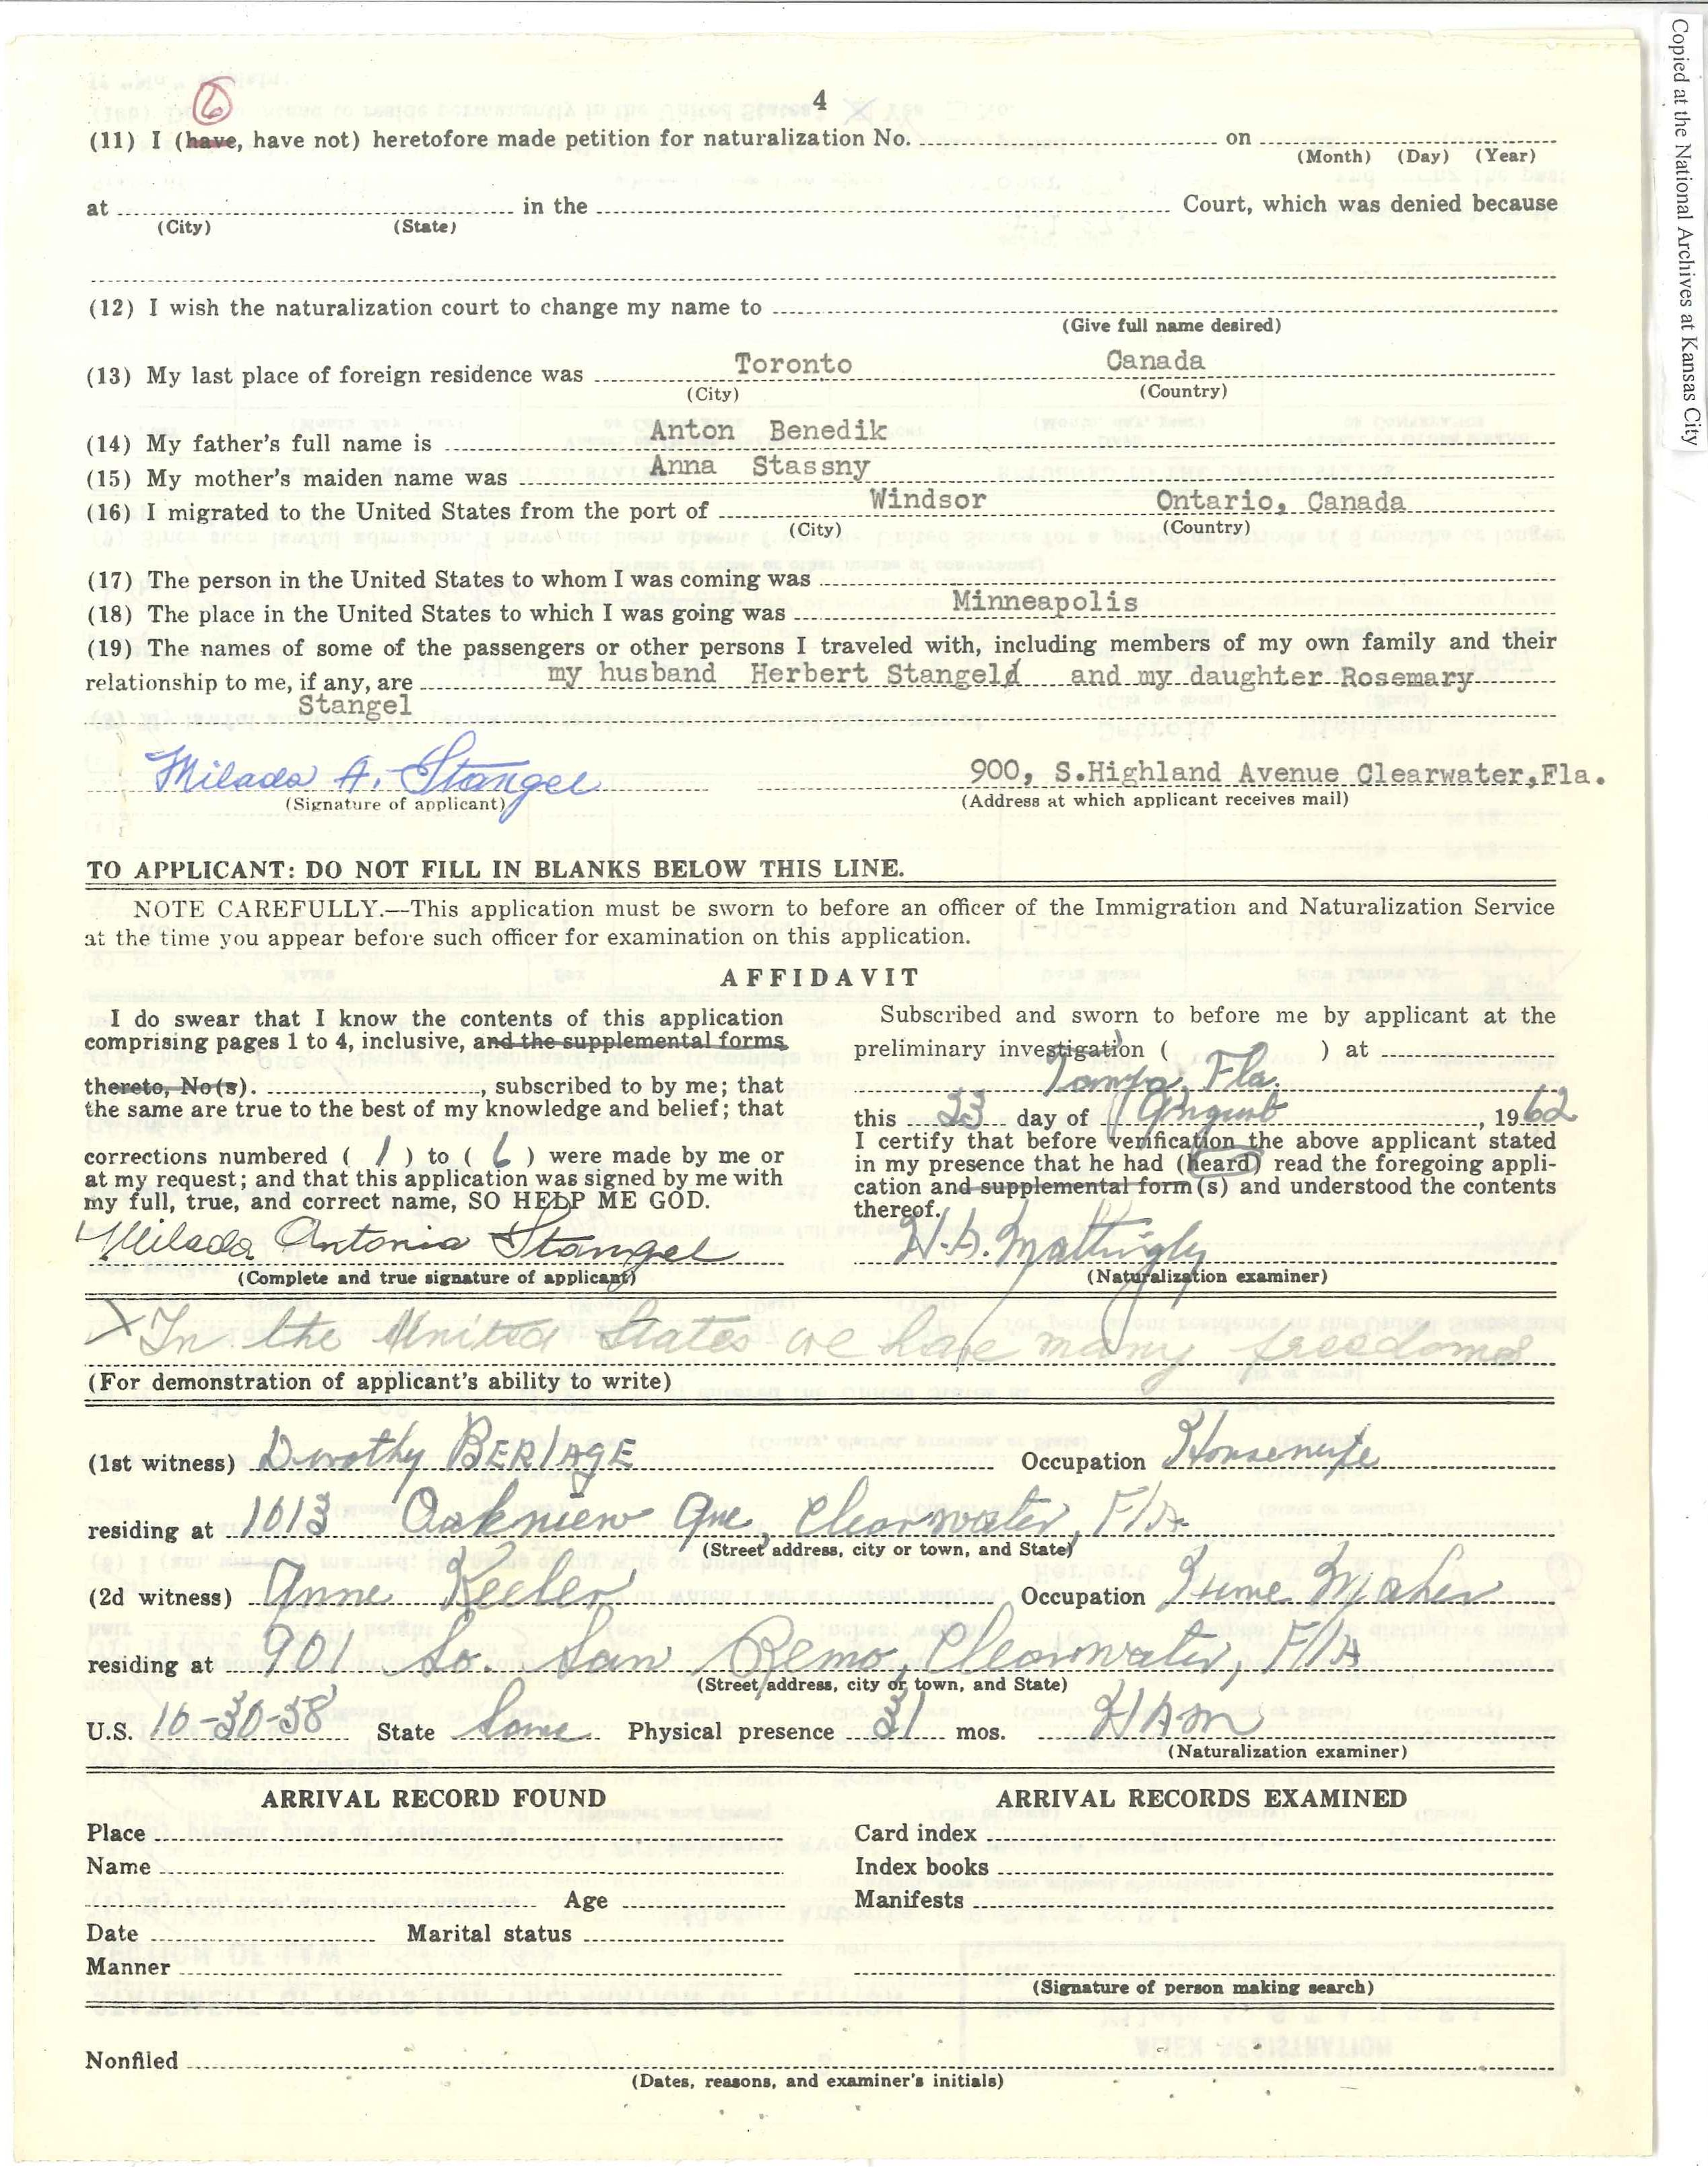 Copied at the National Archives at Kansas City
4
6
(11) I (have, have not) heretofore made petition for naturalization No. on
(Month) (Day) (Year)
at in the Court, which was denied because
(City) (State)
(12) I wish the naturalization court to change my name to
(Give full name desired)
(13) My last place of foreign residence was Toronto Canada
(City) (Country)
(14) My father's full name is Anton Benedik
(15) My mother's maiden name was Anna Stassny
(16) I migrated to the United States from the port of Windsor Ontario, Canada
(City) (Country)
(17) The person in the United States to whom I was coming was
(18) The place in the United States to which I was going was Minneapolis
(19) The names of some of the passengers or other persons I traveled with, including members of my own family and their
relationship to me, if any, are my husband Herbert Stangel and my daughter Rosemary
Stangel
Milada A. Stangel 900, S.Highland Avenue Clearwater,Fla.
(Signature of applicant) (Address at which applicant receives mail)
TO APPLICANT: DO NOT FILL IN BLANKS BELOW THIS LINE.
NOTE CAREFULLY.—This application must be sworn to before an officer of the Immigration and Naturalization Service
at the time you appear before such officer for examination on this application.
AFFIDAVIT
I do swear that I know the contents of this application
comprising pages 1 to 4, inclusive, and the supplemental forms
thereto, No(s). , subscribed to by me; that
the same are true to the best of my knowledge and belief; that
corrections numbered ( 1 ) to ( 6 ) were made by me or
at my request; and that this application was signed by me with
my full, true, and correct name, SO HELP ME GOD.
Milada Antonia Stangel
(Complete and true signature of applicant)
Subscribed and sworn to before me by applicant at the
preliminary investigation ( ) at
Tampa, Fla.
this 23 day of August, 1962
I certify that before verification the above applicant stated
in my presence that he had (heard) read the foregoing appli-
cation and supplemental form(s) and understood the contents
thereof.
H.A. Mattingly
(Naturalization examiner)
X In the United States we have many freedoms
(For demonstration of applicant's ability to write)
(1st witness) Dorothy BERlAGE Occupation Housewife
residing at 1013 Oakview Ave, Clearwater, FlA
(Street address, city or town, and State)
(2d witness) Anne Keeler Occupation Home Maker
residing at 901 So. San Remo, Clearwater, FlA
(Street address, city or town, and State)
U.S. 10-30-58 State Same Physical presence 31 mos. HAM
(Naturalization examiner)
ARRIVAL RECORD FOUND
Place
Name
Age
Date Marital status
Manner
ARRIVAL RECORDS EXAMINED
Card index
Index books
Manifests
(Signature of person making search)
Nonfiled
(Dates, reasons, and examiner's initials)